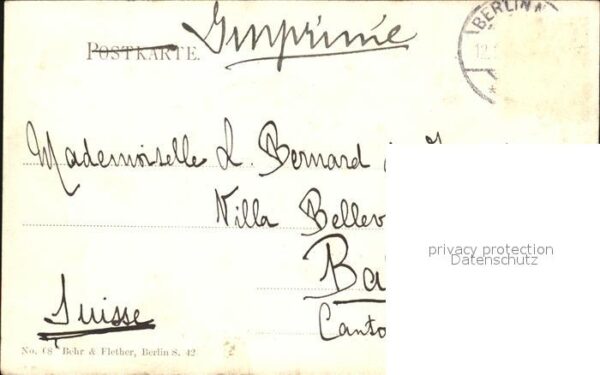 Imprimé
POSTKARTE.
BERLIN
12.
Mademoiselle L. Bernard
Villa Bellev
Ba
Suisse
Canto
privacy protection
Datenschutz
No. 68 Behr & Flether, Berlin S. 42